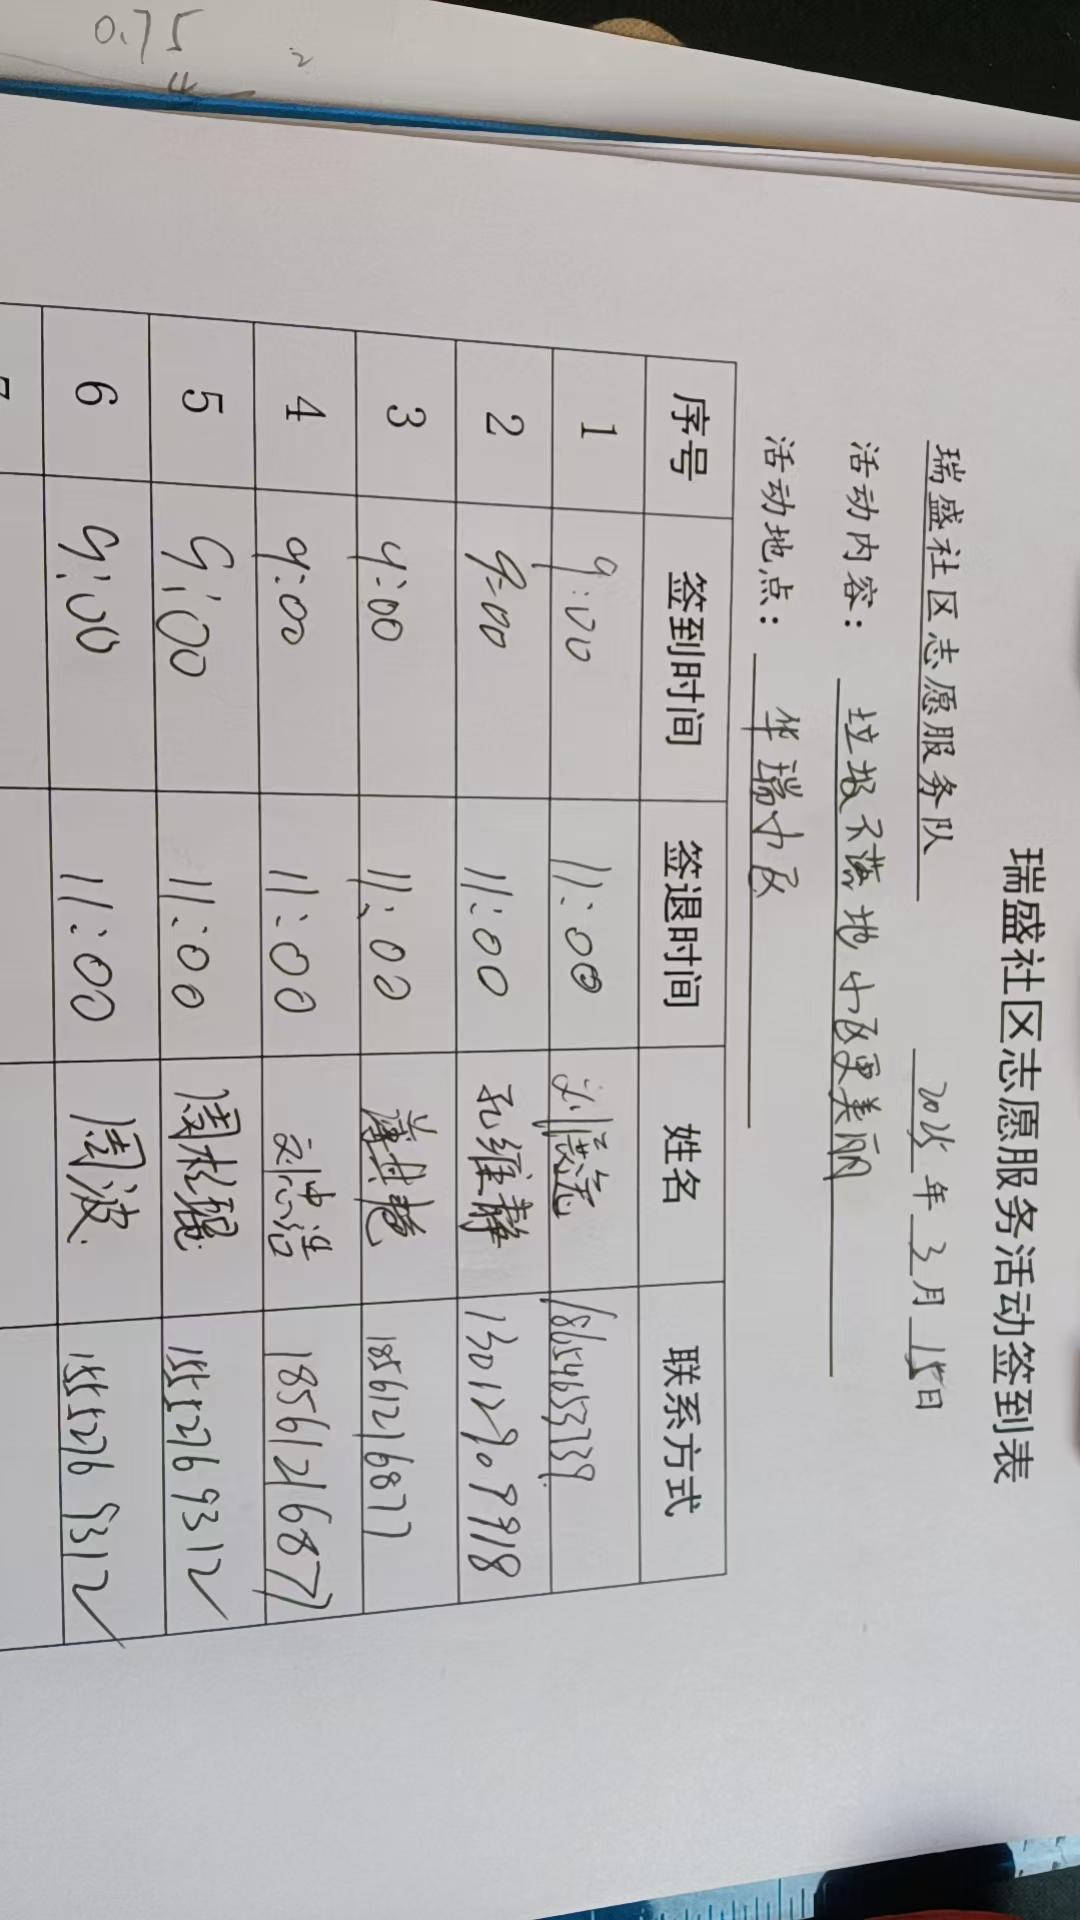 0.75
2
瑞盛社区志愿服务活动签到表
瑞盛社区志愿服务队 2025年3月15日
活动内容：垃圾不落地 小区更美丽
活动地点：华瑞小区
序号 签到时间 签退时间 姓名 联系方式
1 9:00 11:00 刘
2 9:00 11:00 孔维静
3 9:00 11:00 18561216877
4 9:00 11:00 刘忠浩 18561216877
5 9:00 11:00 周 15552769312
6 9:00 11:00 周波 15552769312
7